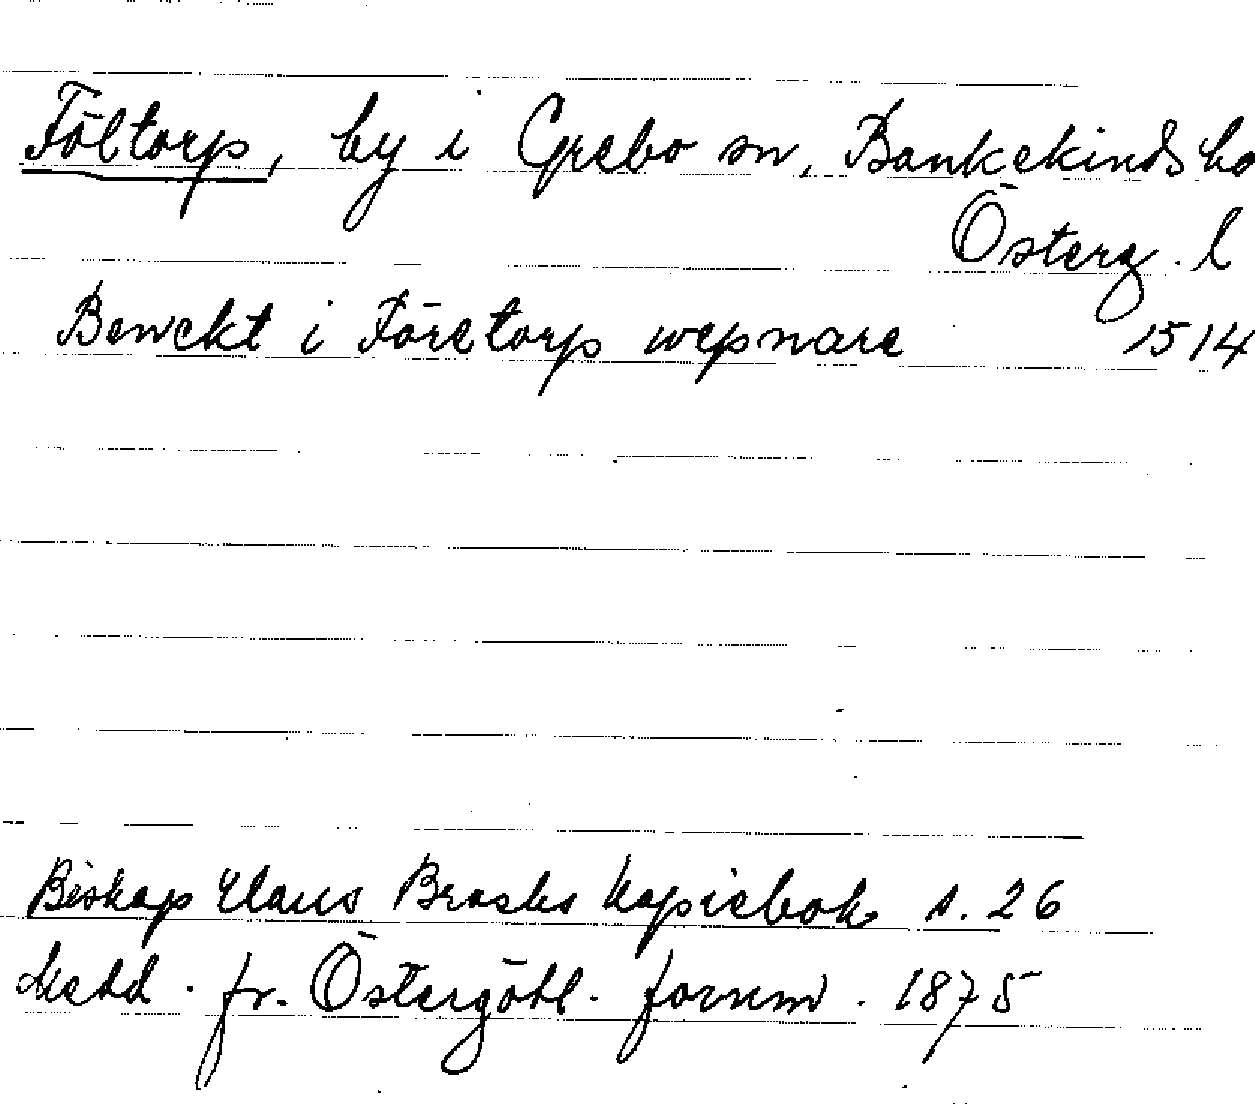 Föltorp, by i Grebo sn, Bankekinds ha
Österg. l
Benckt i Företorp wepnare 1514
Biskop Claus Brasks kopiebok s. 26
Medd. fr. Östergötl. fornm. 1875